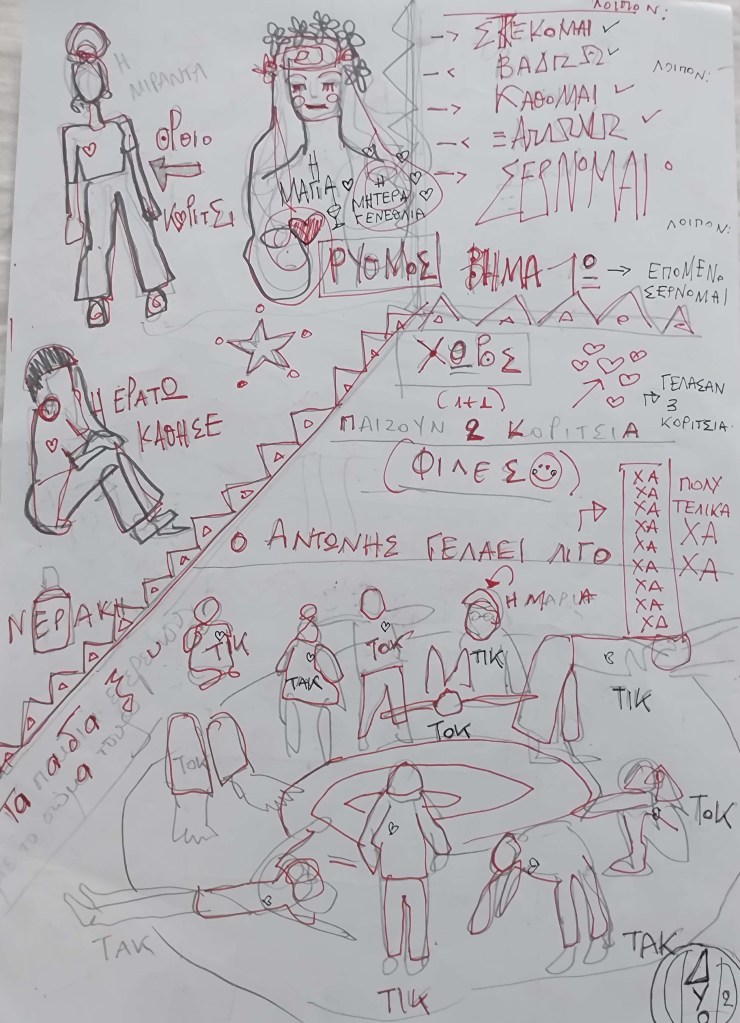 ΛΟΙΠΟΝ:
ΣΤΕΚΟΜΑΙ
ΒΑΔΙΖΩ
ΛΟΙΠΟΝ:
ΚΑΘΟΜΑΙ
ΞΑΠΛΩΝΩ
ΣΕΡΝΟΜΑΙ
ΛΟΙΠΟΝ:
Η
ΜΙΡΑΝΤΑ
ΟΡΘΙΟ
ΚΟΡΙΤΣΙ
Η
ΜΑΓΙΑ
Η
ΜΗΤΕΡΑ
ΓΕΝΕΘΛΙΑ
ΡΥΘΜΟΣ ΒΗΜΑ 1ο → ΕΠΟΜΕΝΟ
ΣΕΡΝΟΜΑΙ
ΧΩΡΟΣ
(1+1)
ΠΑΙΖΟΥΝ 2 ΚΟΡΙΤΣΙΑ
(ΦΙΛΕΣ)
ΓΕΛΑΣΑΝ
3
ΚΟΡΙΤΣΙΑ
Η ΕΡΑΤΩ
ΚΑΘΗΣΕ
Ο ΑΝΤΩΝΗΣ ΓΕΛΑΕΙ ΛΙΓΟ
ΧΑ
ΧΑ
ΧΑ
ΧΑ
ΧΑ
ΧΑ
ΧΑ
ΧΑ
ΧΑ
ΠΟΛΥ
ΤΕΛΙΚΑ
ΧΑ
ΧΑ
ΝΕΡΑΚΙ
Η ΜΑΡΙΑ
ΤΙΚ
ΤΑΚ
ΤΟΚ
ΤΙΚ
ΤΙΚ
ΤΟΚ
ΤΟΚ
ΤΟΚ
Τα παιδια
με το σώμα τους
ΤΑΚ
ΤΙΚ
ΤΑΚ
ΔΥΟ
2